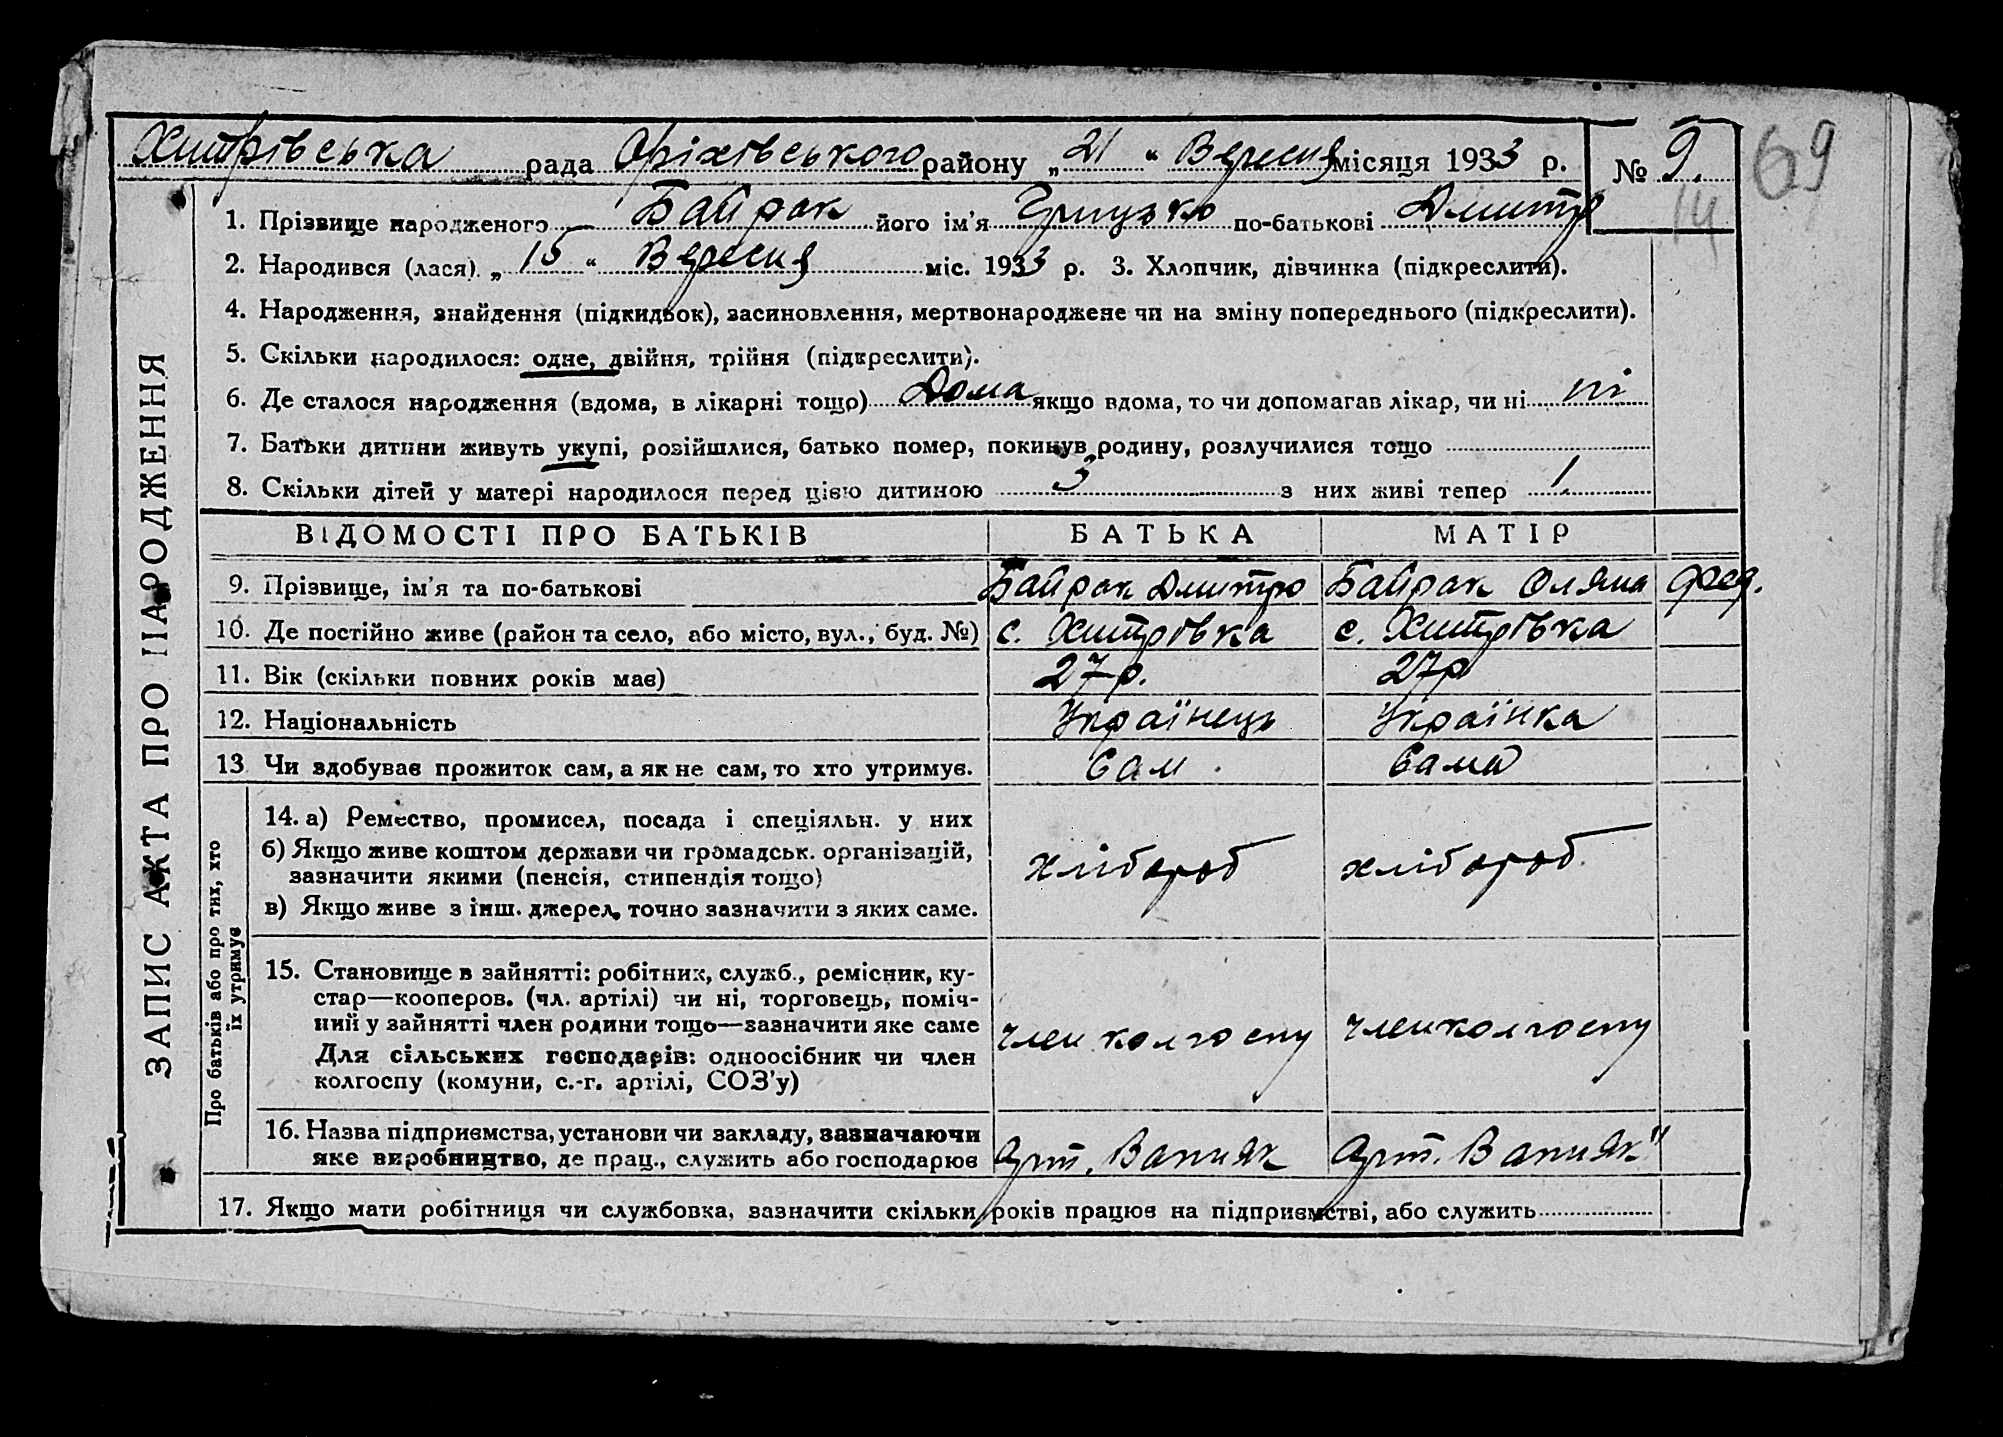 Хитрівська рада Оріхівського району „21“ Вересня місяця 1933 р. № 9. 69
14
1. Прізвище народженого Байрак його ім'я Грицько по-батькові Дмитр
2. Народився (лася) „15“ Вересня міс. 1933 р. 3. Хлопчик, дівчинка (підкреслити).
4. Народження, знайдення (підкидьок), засиновлення, мертвонароджене чи на зміну попереднього (підкреслити).
5. Скільки народилося: одне, двійня, трійня (підкреслити).
6. Де сталося народження (вдома, в лікарні тощо) Дома якщо вдома, то чи допомагав лікар, чи ні ні
7. Батьки дитини живуть укупі, розійшлися, батько помер, покинув родину, розлучилися тощо
8. Скільки дітей у матері народилося перед цією дитиною 3 з них живі тепер 1
ВІДОМОСТІ ПРО БАТЬКІВ БАТЬКА МАТІР
9. Прізвище, ім'я та по-батькові Байрак Дмитро Байрак Оляна Фед.
10. Де постійно живе (район та село, або місто, вул., буд. №) с. Хитрівка с. Хитрівка
11. Вік (скільки повних років має) 27 р. 27 р
12. Національність Українець Українка
13 Чи здобуває прожиток сам, а як не сам, то хто утримує. Сам. Сама
14. а) Ремество, промисел, посада і спеціяльн. у них
б) Якщо живе коштом держави чи громадськ. організацій,
зазначити якими (пенсія, стипендія тощо) хлібороб хлібороб
в) Якщо живе з інш. джерел, точно зазначити з яких саме.
15. Становище в зайнятті: робітник, служб., ремісник, ку-
стар—кооперов. (чл. артілі) чи ні, торговець, поміч-
ний у зайнятті член родини тощо—зазначити яке саме
член колгоспу член колгоспу
Для сільських господарів: одноосібник чи член
колгоспу (комуни, с.-г. артілі, СОЗ'у)
16. Назва підприємства, установи чи закладу, зазначаючи
яке виробництво, де прац., служить або господарює Арт. Вапняк Арт. Вапняк"
17. Якщо мати робітниця чи службовка, зазначити скільки років працює на підприємстві, або служить
ЗАПИС АКТА ПРО НАРОДЖЕННЯ
Про батьків або про тих, хто
їх утримує